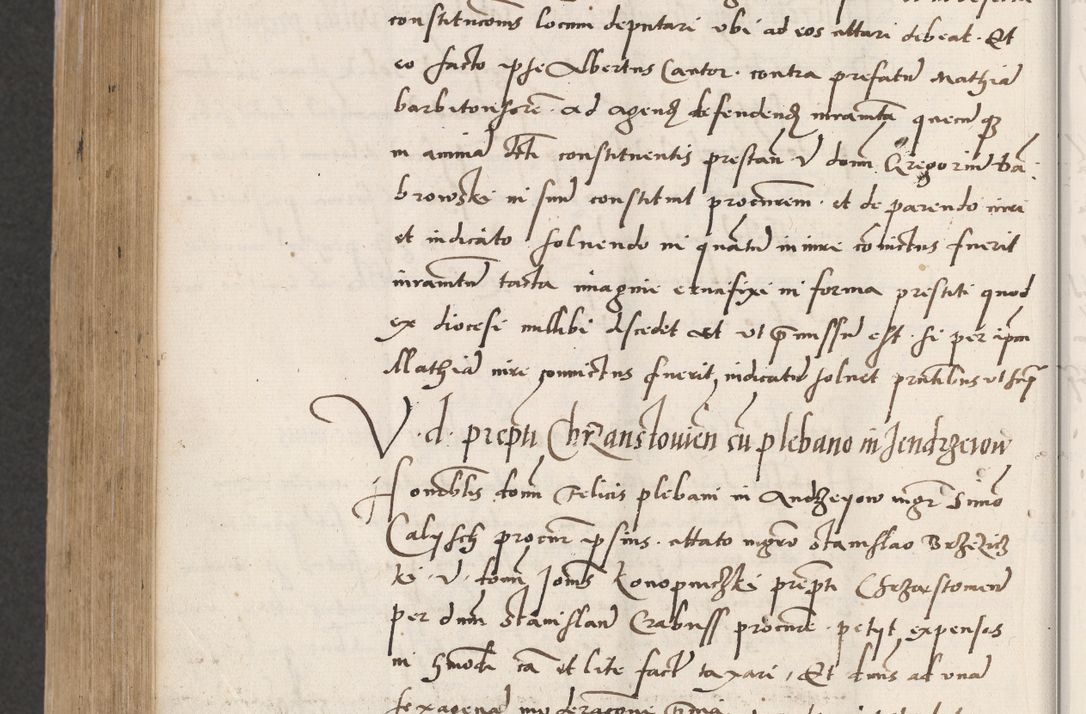 constitucionis locum deputari ubi ad eos attari debeat. Et
eo facto ipse Albertus Cantor. contra prefatū Mathiā
barbitonsorē. ad agend defendend iuramta quecūqz
in animā constituentis prestan V donī Gregoriū Dā:
browski in suū constituit procurem. et de parendo iuri
et iudicato solvendo in quātū in iure convictus fuerit
iuramtū tacta imagine crucifixi in forma prestiti quod
ex diocesi nullibi discedet et ut p̄missū est. si per ipm
Mathiā iure convictus fuerit, iudicatū solvet pntibus ut supͣ
V. d. prepti Chrzanstowien cū plebano in Jendrzerow
Honoblis domi Felicis plebani in Andrzeyow mgr Simo
Calysch procur ipsius. attato mgro Stanislao Brzezicz
ki V. domi Joannis Konopniczki prepti Chrzastowien
per dnm Stanislaū Crabuss procure. petyt expensas
in hmodi cā et lite fact taxari, Et dnus ad unā
sexagenā moderacione